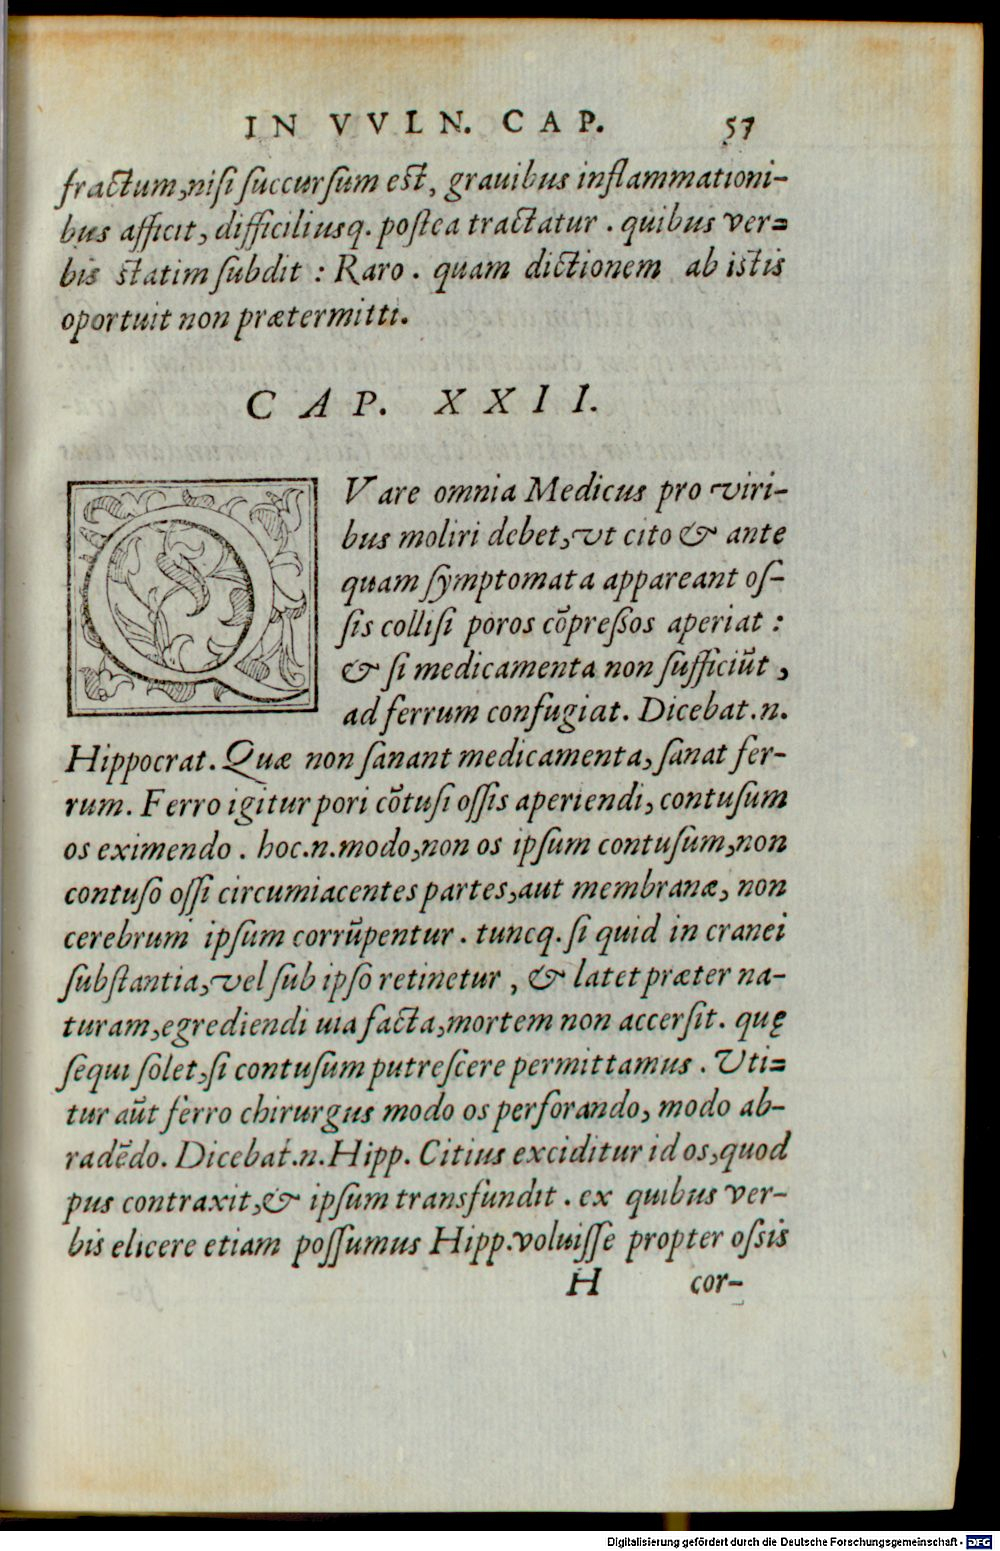 IN VVLN. CAP. 57
fractum,nisi succursum est, grauibus inflammationi-
bus afficit, difficiliusq. postea tractatur . quibus ver=
bis statim subdit : Raro . quam dictionem ab istis
oportuit non prætermitti.
CAP. XXII.
QVare omnia Medicus pro viri-
bus moliri debet,vt cito & ante
quam symptomata appareant os-
sis collisi poros cõpressos aperiat :
& si medicamenta non sufficiũt ,
ad ferrum confugiat. Dicebat.n.
Hippocrat. Quæ non sanant medicamenta, sanat fer-
rum. Ferro igitur pori cõtusi ossis aperiendi, contusum
os eximendo . hoc.n.modo,non os ipsum contusum,non
contuso ossi circumiacentes partes,aut membranæ, non
cerebrum ipsum corrũpentur . tuncq. si quid in cranei
substantia,vel sub ipso retinetur , & latet præter na-
turam,egrediendi uia facta,mortem non accersit. quę
sequi solet,si contusum putrescere permittamus . Vti=
tur aũt ferro chirurgus modo os perforando, modo ab-
radẽdo. Dicebat.n.Hipp. Citius exciditur id os,quod
pus contraxit,& ipsum transfundit . ex quibus ver-
bis elicere etiam possumus Hipp.voluisse propter ossis
H cor-
Digitalisierung gefördert durch die Deutsche Forschungsgemeinschaft - DFG